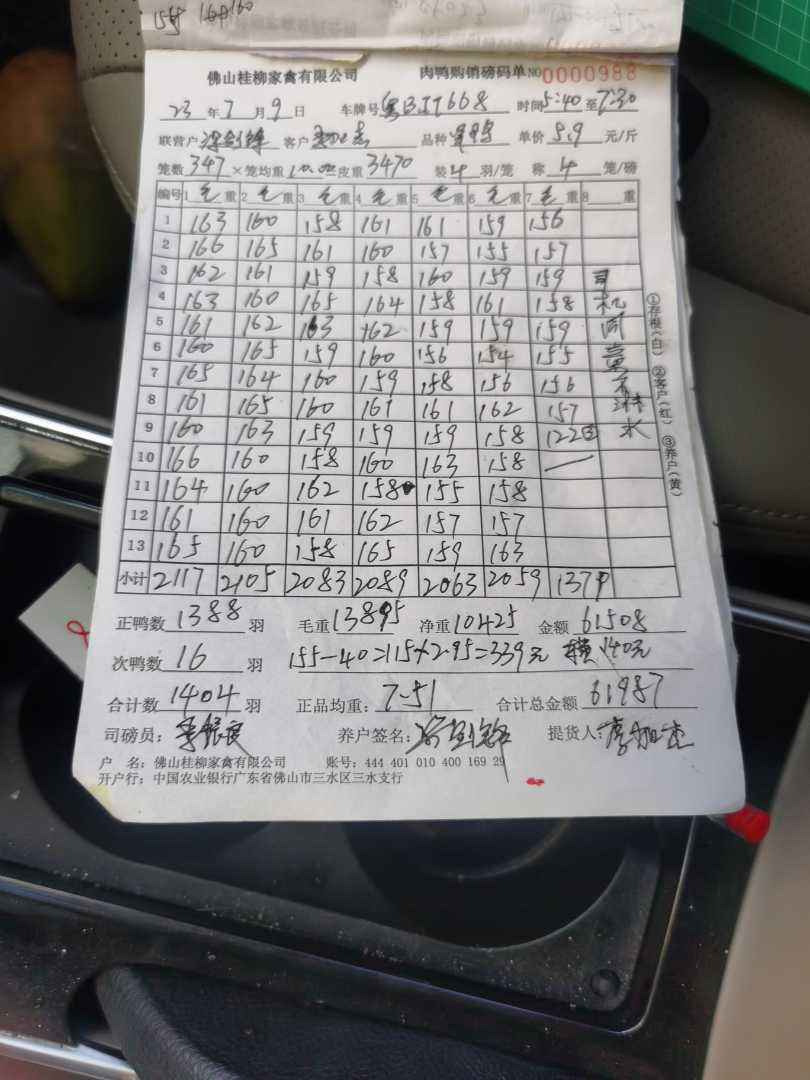 155 160 160
佛山桂柳家禽有限公司 肉鸭购销磅码单 NO 0000988
23 年 7 月 9 日 车牌号 粤BJT668 时间 5:40 至 7:30
联营户 客户 品种 单价 5.9 元/斤
笼数 347 × 笼均重 10.0 皮重 3470 装 4 羽/笼 称 4 笼/磅
编号 1 毛重 2 毛重 3 毛重 4 毛重 5 毛重 6 毛重 7 毛重 8 重
1 163 160 158 161 161 159 156
2 166 165 161 160 157 155 157
3 162 161 159 158 160 159 159 司
4 163 160 165 164 158 161 158 机
5 161 162 163 162 159 159 159 同
6 160 165 159 160 156 154 155 意
7 165 164 160 159 158 156 156 不
8 161 165 160 161 161 162 157 淋
9 160 163 159 159 159 158 122③ 水
10 166 160 158 160 163 158
11 164 160 162 158 155 158
12 161 160 161 162 157 157
13 165 160 158 165 159 163
小计 2117 2105 2083 2089 2063 2059 1379
正鸭数 1388 羽 毛重 13895 净重 10425 金额 61508
次鸭数 16 羽 155-40=115×2.95=339元 140元
合计数 1404 羽 正品均重: 7.51 合计总金额 61987
司磅员: 养户签名: 提货人:
户 名: 佛山桂柳家禽有限公司 账号: 444 401 010 400 169 29
开户行: 中国农业银行广东省佛山市三水区三水支行
①存根(白) ②客户(红) ③养户(黄)